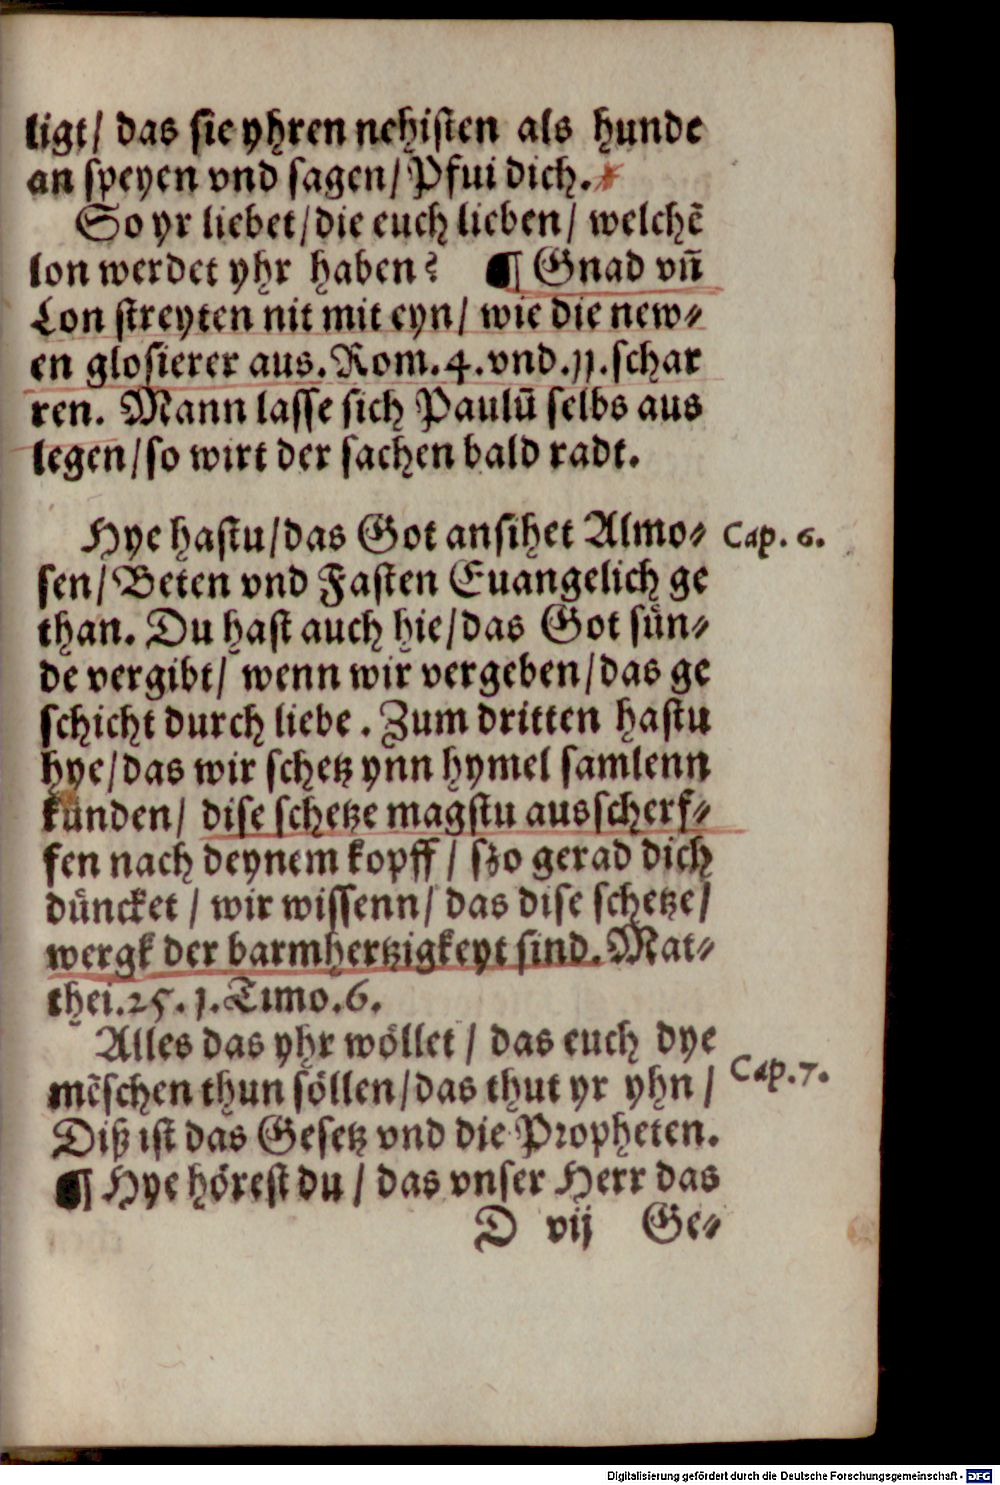 ligt/ das sie yhren nehisten als hunde
an speyen vnd sagen/ Pfui dich.
So yr liebet/ die euch lieben/ welchē
lon werdet yhr haben? ¶ Gnad vñ
Lon streyten nit mit eyn/ wie die new⸗
en glosierer aus. Rom. 4. vnd. 11. schar
ren. Mann lasse sich Paulū selbs aus
legen/ so wirt der sachen bald radt.
Hye hastu/ das Got ansihet Almo⸗ Cap. 6.
sen/ Beten vnd Fasten Euangelich ge
than. Du hast auch hie/ das Got sün⸗
de vergibt/ wenn wir vergeben/ das ge
schicht durch liebe. Zum dritten hastu
hye/ das wir schetz ynn hymel samlenn
künden/ dise schetze magstu ausscherf⸗
fen nach deynem kopff/ szo gerad dich
düncket/ wir wissenn/ das dise schetze/
wergk der barmhertzigkeyt sind. Mat⸗
thei. 25. 1. Timo. 6.
Alles das yhr wöllet/ das euch dye
mēschen thun söllen/ das thut yr yhn/ Cap. 7.
Diß ist das Gesetz vnd die Propheten.
¶ Hye hörest du/ das vnser Herr das
D vij Ge⸗
Digitalisierung gefördert durch die Deutsche Forschungsgemeinschaft - DFG